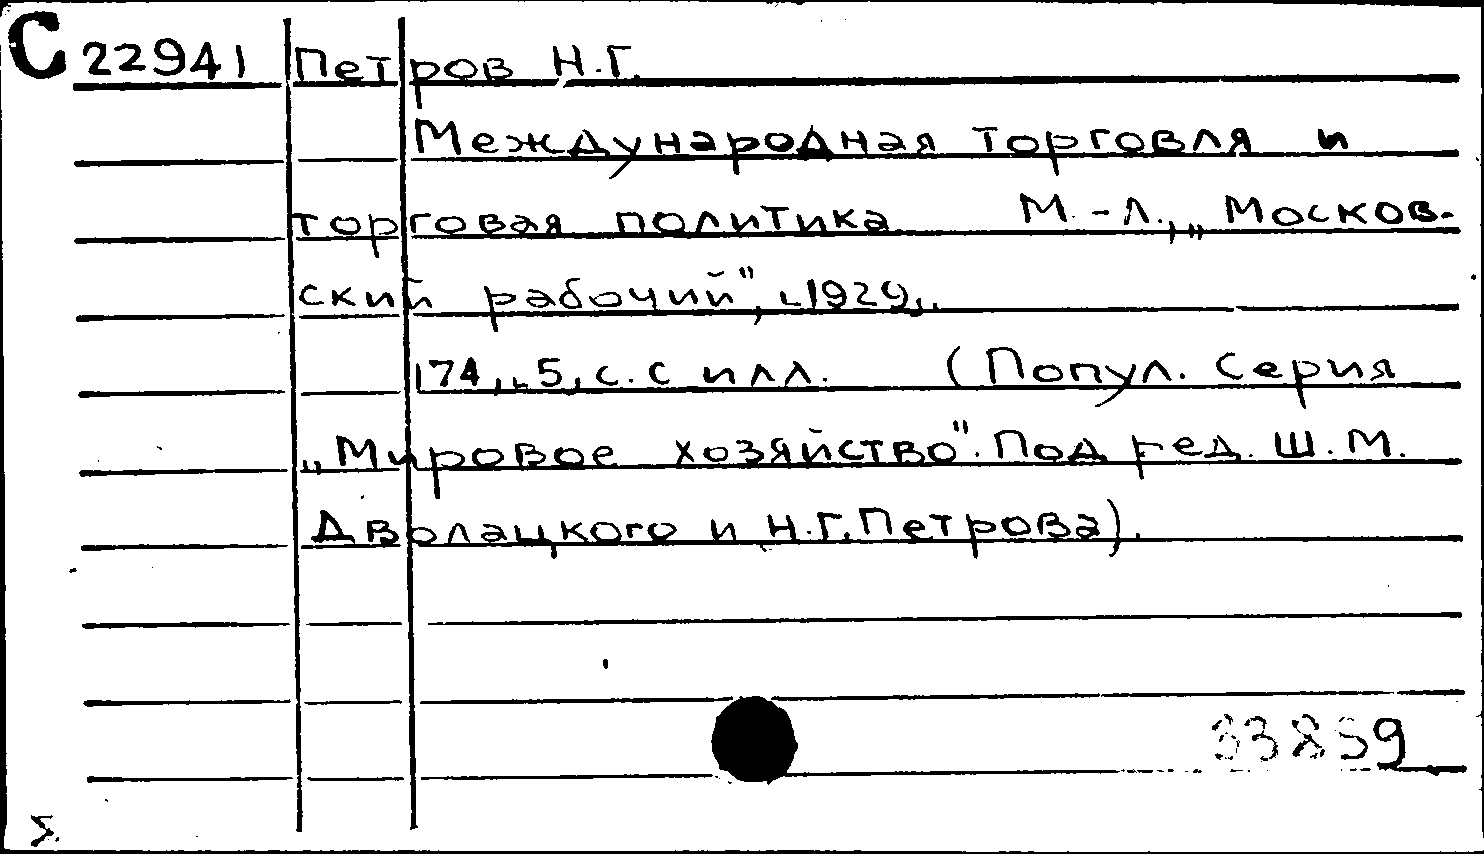 С 22941 Петров Н.Г.
Международная торговля и
торговая политика М.-Л., „Москов-
ский рабочий", [1929].
174, [5] с. с илл. (Попул. серия
„Мировое хозяйство". Под ред. Ш.М.
Дволацкого и Н.Г. Петрова).
33859